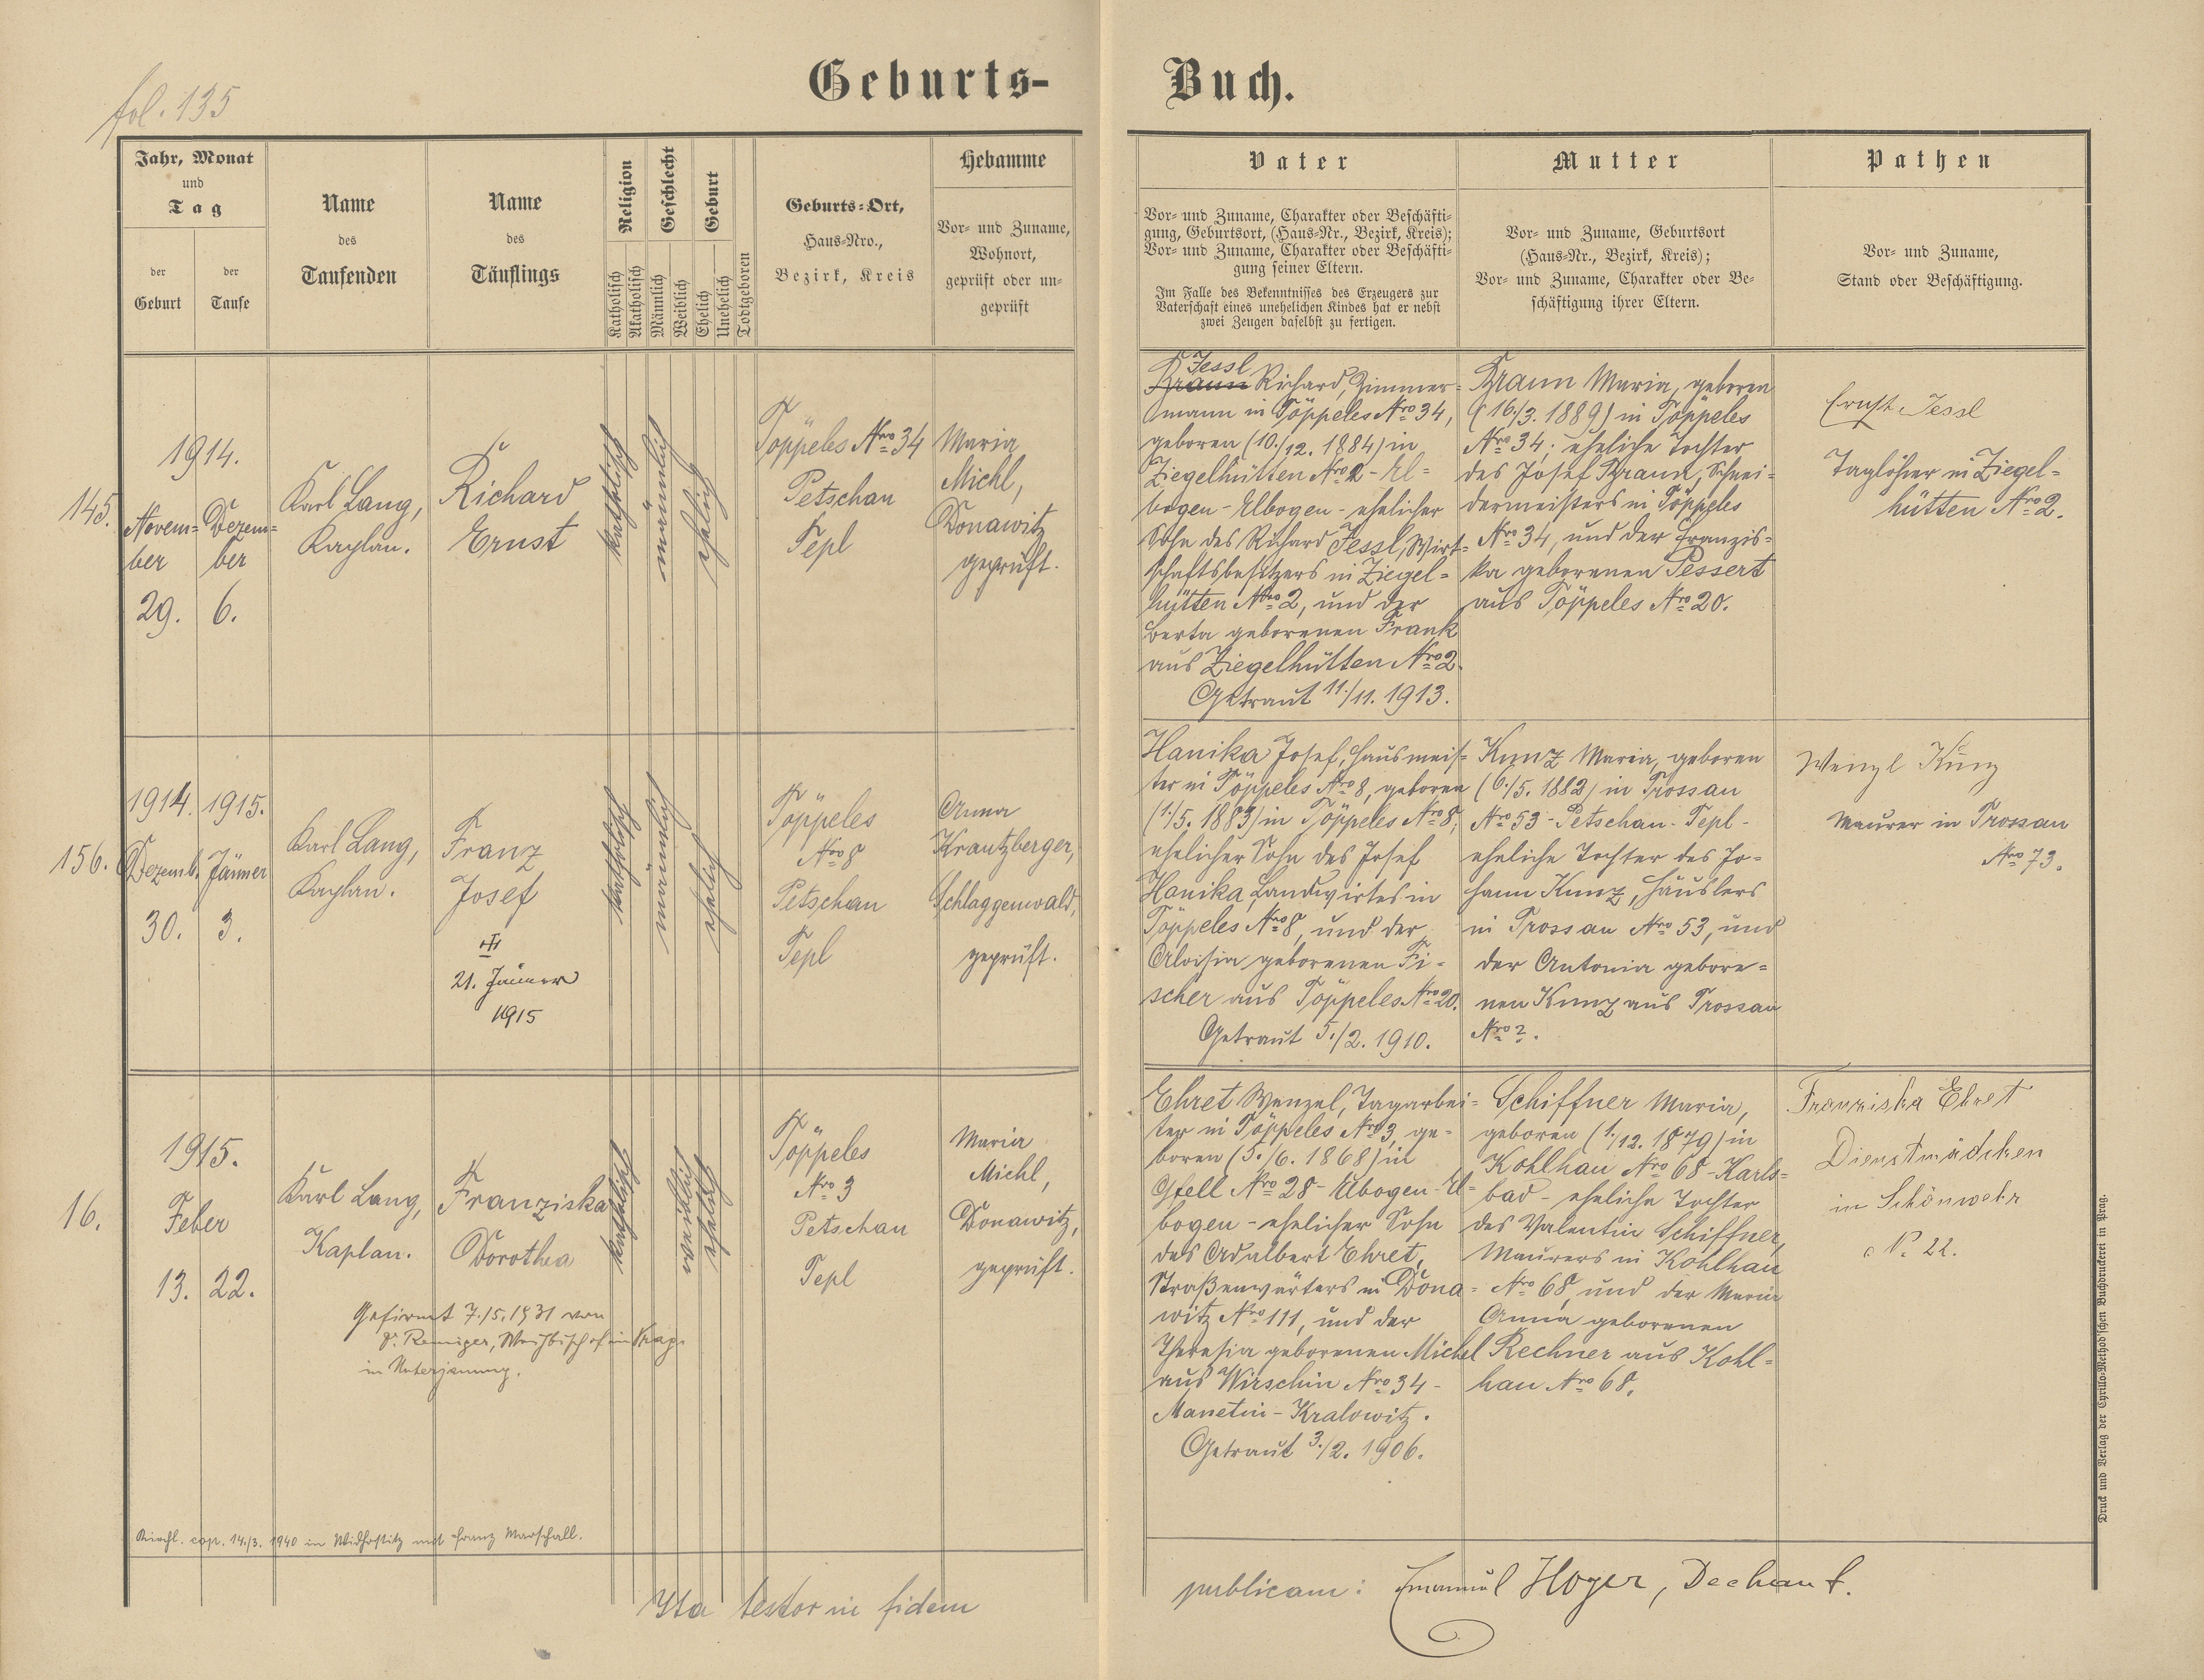 fol. 135
Geburts-
Buch.
Jahr, Monat
und
Tag
der
Geburt
der
Taufe
Name
des
Taufenden
Name
des
Täuflings
Religion
Katholisch
Akatholisch
Geschlecht
Männlich
Weiblich
Geburt
Ehelich
Unehelich
Todtgeboren
Geburts-Ort,
Haus-Nro.,
Bezirk, Kreis
Hebamme
Vor- und Zuname,
Wohnort,
geprüft oder un-
geprüft
Vater
Vor- und Zuname, Charakter oder Beschäfti-
gung, Geburtsort, (Haus-Nr., Bezirk, Kreis);
Vor- und Zuname, Charakter oder Beschäfti-
gung seiner Eltern.
Im Falle des Bekenntnisses des Erzeugers zur
Vaterschaft eines unehelichen Kindes hat er nebst
zwei Zeugen daselbst zu fertigen.
Mutter
Vor- und Zuname, Geburtsort
(Haus-Nr., Bezirk, Kreis);
Vor- und Zuname, Charakter oder Be-
schäftigung ihrer Eltern.
Pathen
Vor- und Zuname,
Stand oder Beschäftigung.
145.
1914.
Novem-
ber
29.
Dezem-
ber
6.
Karl Lang,
Kaplan.
Richard
Ernst
katholisch
männlich
ehelich
Töppeles Nro 34
Petschau
Tepl
Maria
Michl,
Donawitz
geprüft.
Jessl
Braun Richard, Zimmer-
mann in Töppeles Nro 34,
geboren (10./12. 1884) in
Ziegelhütten Nro 2 - El-
bogen - Elbogen - ehelicher
Sohn des Richard Jessl, Wirt-
schaftsbesitzers in Ziegel-
hütten Nro 2, und der
Berta geborenen Frank
aus Ziegelhütten Nro 2.
Getraut 11./11. 1913.
Braun Maria, geboren
(16./3. 1889) in Töppeles
Nro 34; eheliche Tochter
des Josef Braun, Schnei-
dermeisters in Töppeles
Nro 34, und der Franzis-
ka geborenen Pessert
aus Töppeles Nro 20.
Ernst Jessl
Taglöhner in Ziegel-
hütten Nro 2.
156.
1914.
Dezemb.
30.
1915.
Jänner
3.
Karl Lang,
Kaplan.
Franz
Josef
21. Jänner
1915
katholisch
männlich
ehelich
Töppeles
Nro 8
Petschau
Tepl
Anna
Krautzberger,
Schlaggenwald,
geprüft.
Hanika Josef, Hausmeis-
ter in Töppeles Nro 8, geboren
(1./5. 1883) in Töppeles Nro 8,
ehelicher Sohn des Josef
Hanika, Landwirtes in
Töppeles Nro 8, und der
Aloisia geborenen Fi-
scher aus Töppeles Nro 20.
Getraut 5./2. 1910.
Kunz Maria, geboren
(6./5. 1882) in Trossau
Nro 53 - Petschau - Tepl -
eheliche Tochter des Jo-
hann Kunz, Häuslers
in Trossau Nro 53, und
der Antonia gebore-
nen Kunz aus Trossau
Nro ?.
Wenzl Kunz
Maurer in Trossau
Nro 73.
16.
1915.
Feber
13.
22.
Karl Lang,
Kaplan.
Franziska
Dorothea
Gefirmt 7./5. 1931 von
Dr. Remiger, Weihbischof in Prag.
in
katholisch
weiblich
ehelich
Töppeles
Nro 3
Petschau
Tepl
Maria
Michl,
Donawitz,
geprüft.
Ehret Wenzel, Tagarbei-
ter in Töppeles Nro 3, ge-
boren (5./6. 1868) in
Gfell Nro 28 - Elbogen - El-
bogen - ehelicher Sohn
des Adalbert Ehret,
Straßenwärters in Dona-
witz Nro 111, und der
Theresia geborenen Michel
aus Wirschin Nro 34 -
Manetin - Kralowitz.
Getraut 3./2. 1906.
Schiffner Maria,
geboren (1./12. 1879) in
Kohlhau Nro 68 - Karls-
bad - eheliche Tochter
des Valentin Schiffner,
Maurers in Kohlhau
Nro 68, und der Maria
Anna geborenen
Rechner aus Kohl-
hau Nro 68.
Franziska Ehret
Dienstmädchen
in Schönwehr
N. 22.
Kirchl. cop. 14./3. 1940 in mit Franz Marschall.
Ita testor in fidem
publicam: Emanuel Hoyer, Dechant.
Druck und Verlag der Cyrillo-Method'schen Buchdruckerei in Prag.